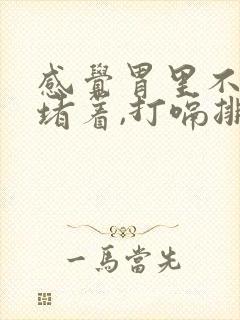 感覺胃里不
堵着,打嗝排
一馬當先